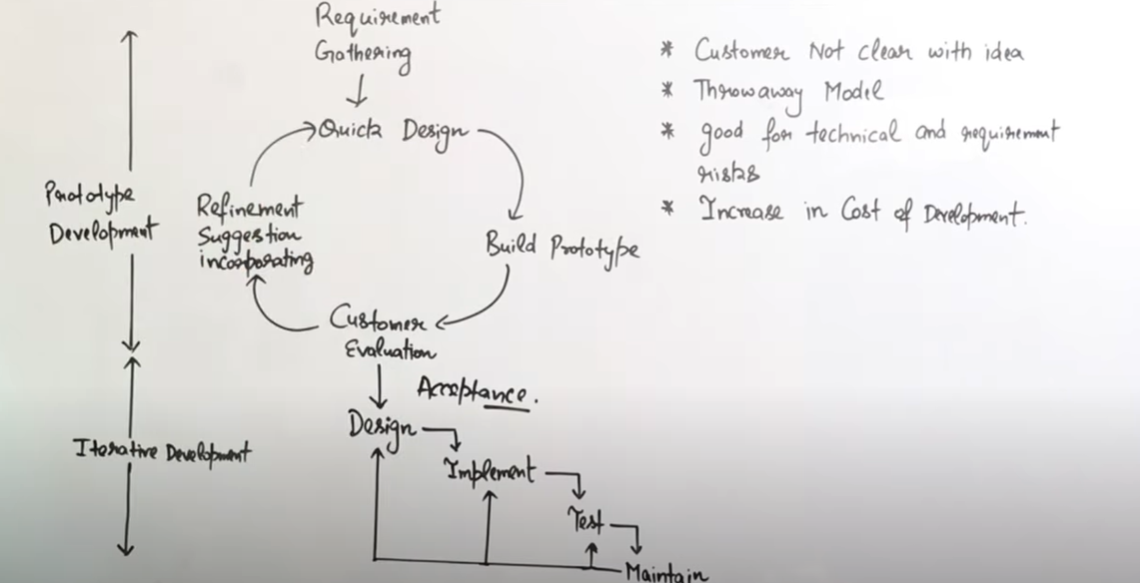 Requirement
Gathering
Quick Design
Build Prototype
Customer
Evaluation
Refinement
Suggestion
incorporating
Acceptance.
Design
Implement
Test
Maintain
Prototype
Development
Iterative Development
* Customer Not clear with idea
* Throwaway Model
* good for technical and requirement
risks
* Increase in Cost of Development.